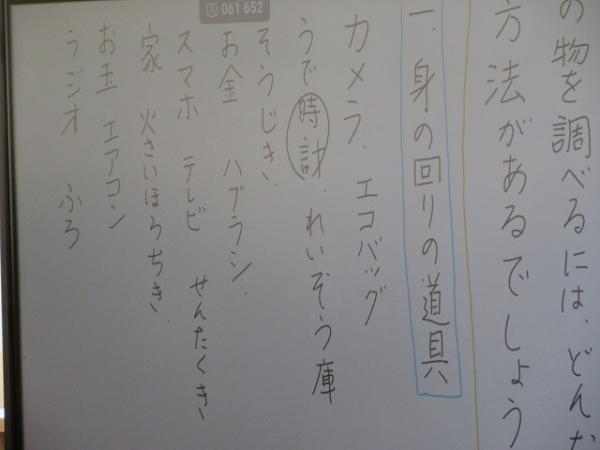 の物を調べるには、どんな
方法があるでしょう
一、身の回りの道具
カメラ、エコバッグ
うで時計、れいぞう庫
そうじき、
お金 ハブラシ、
スマホ テレビ せんたくき、
家 火さいほうちき、
お玉 エアコン
ラジオ ふろ
061 652